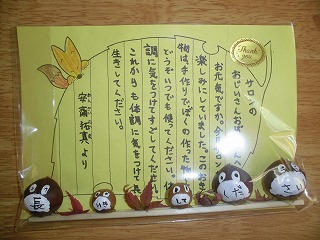 Thank you
サロンの
おじいさんおばあさんへ
お元気ですか。今月サロン
楽しみにしていました。このおき
物は手作りでぼくの作った物
どうぞいつでも使ってください。体
調に気をつけてすごしてください。
これからも体調に気をつけて長
生きしてください。
安齋拓真より
長
いき
して
くだ
さい